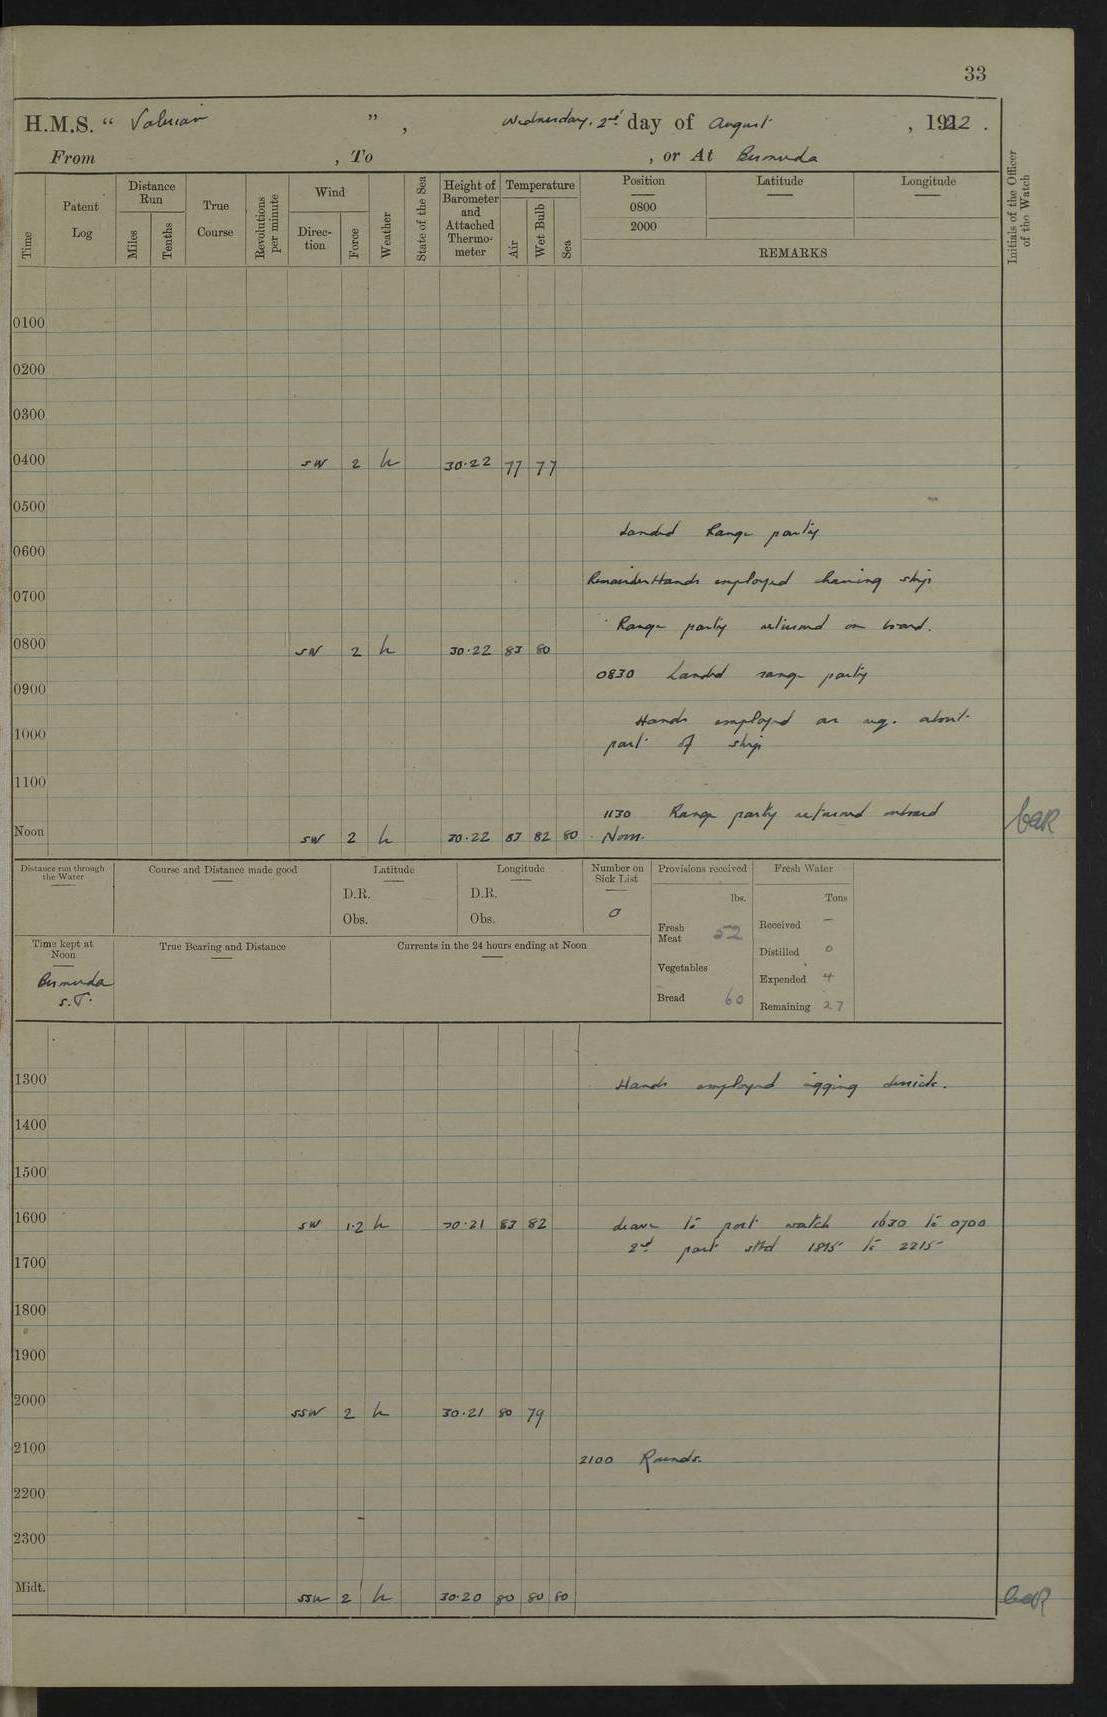 33
H.M.S. “ Valerian ” , Wednesday. 2nd day of August , 1922 .
From , To , or At Bermuda
Time
Patent Log
Distance Run
Miles
Tenths
True Course
Revolutions per minute
Wind
Direction
Force
Weather
State of the Sea
Height of Barometer and Attached Thermometer
Temperature
Air
Wet Bulb
Sea
Position
0800
2000
Latitude
Longitude
REMARKS
Initials of the Officer of the Watch
0100
0200
0300
0400 SW 2 h 30.22 77 77
0500
Landed Range party
0600
Remainder Hands employed cleaning ship
0700
Range party returned on board.
0800 SW 2 h 30.22 83 80
0830 Landed range party
0900
Hands employed as req. about
1000
part of ship
1100
1130 Range party returned onboard
Noon SW 2 h 30.22 83 82 80 Noon.
Distance run through the Water
Course and Distance made good
Latitude
D.R.
Obs.
Longitude
D.R.
Obs.
Number on Sick List
0
Provisions received
lbs.
Fresh Meat 52
Vegetables
Bread 60
Fresh Water
Tons
Received -
Distilled 0
Expended 4
Remaining 27
Time kept at Noon
Bermuda
S.T.
True Bearing and Distance
Currents in the 24 hours ending at Noon
1300
Hands employed rigging derrick.
1400
1500
1600 SW 1.2 h 30.21 83 82 Leave to port watch 1630 to 0700
2nd part stbd 1815 to 2215
1700
1800
1900
2000 SSW 2 h 30.21 80 79
2100
2100 Rounds.
2200
2300
Midt. SSW 2 h 30.20 80 80 80